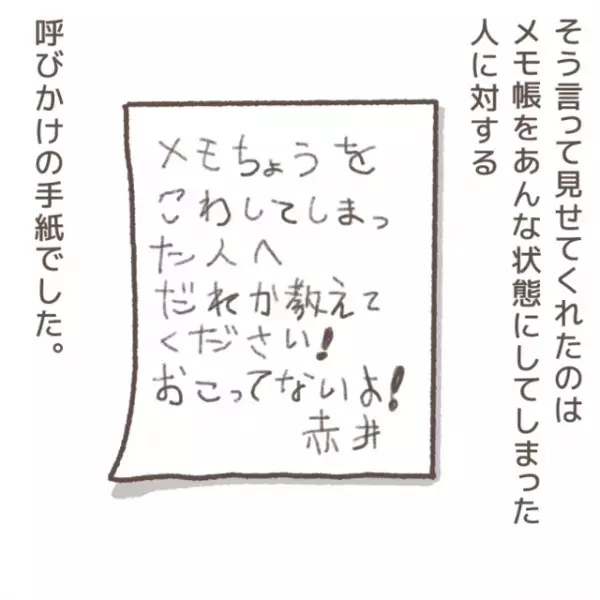 そう言って見せてくれたのは
メモ帳をあんな状態にしてしまった
人に対する
メモちょうを
こわしてしまっ
た人へ
だれか教えて
ください!
おこってないよ!
赤井
呼びかけの手紙でした。